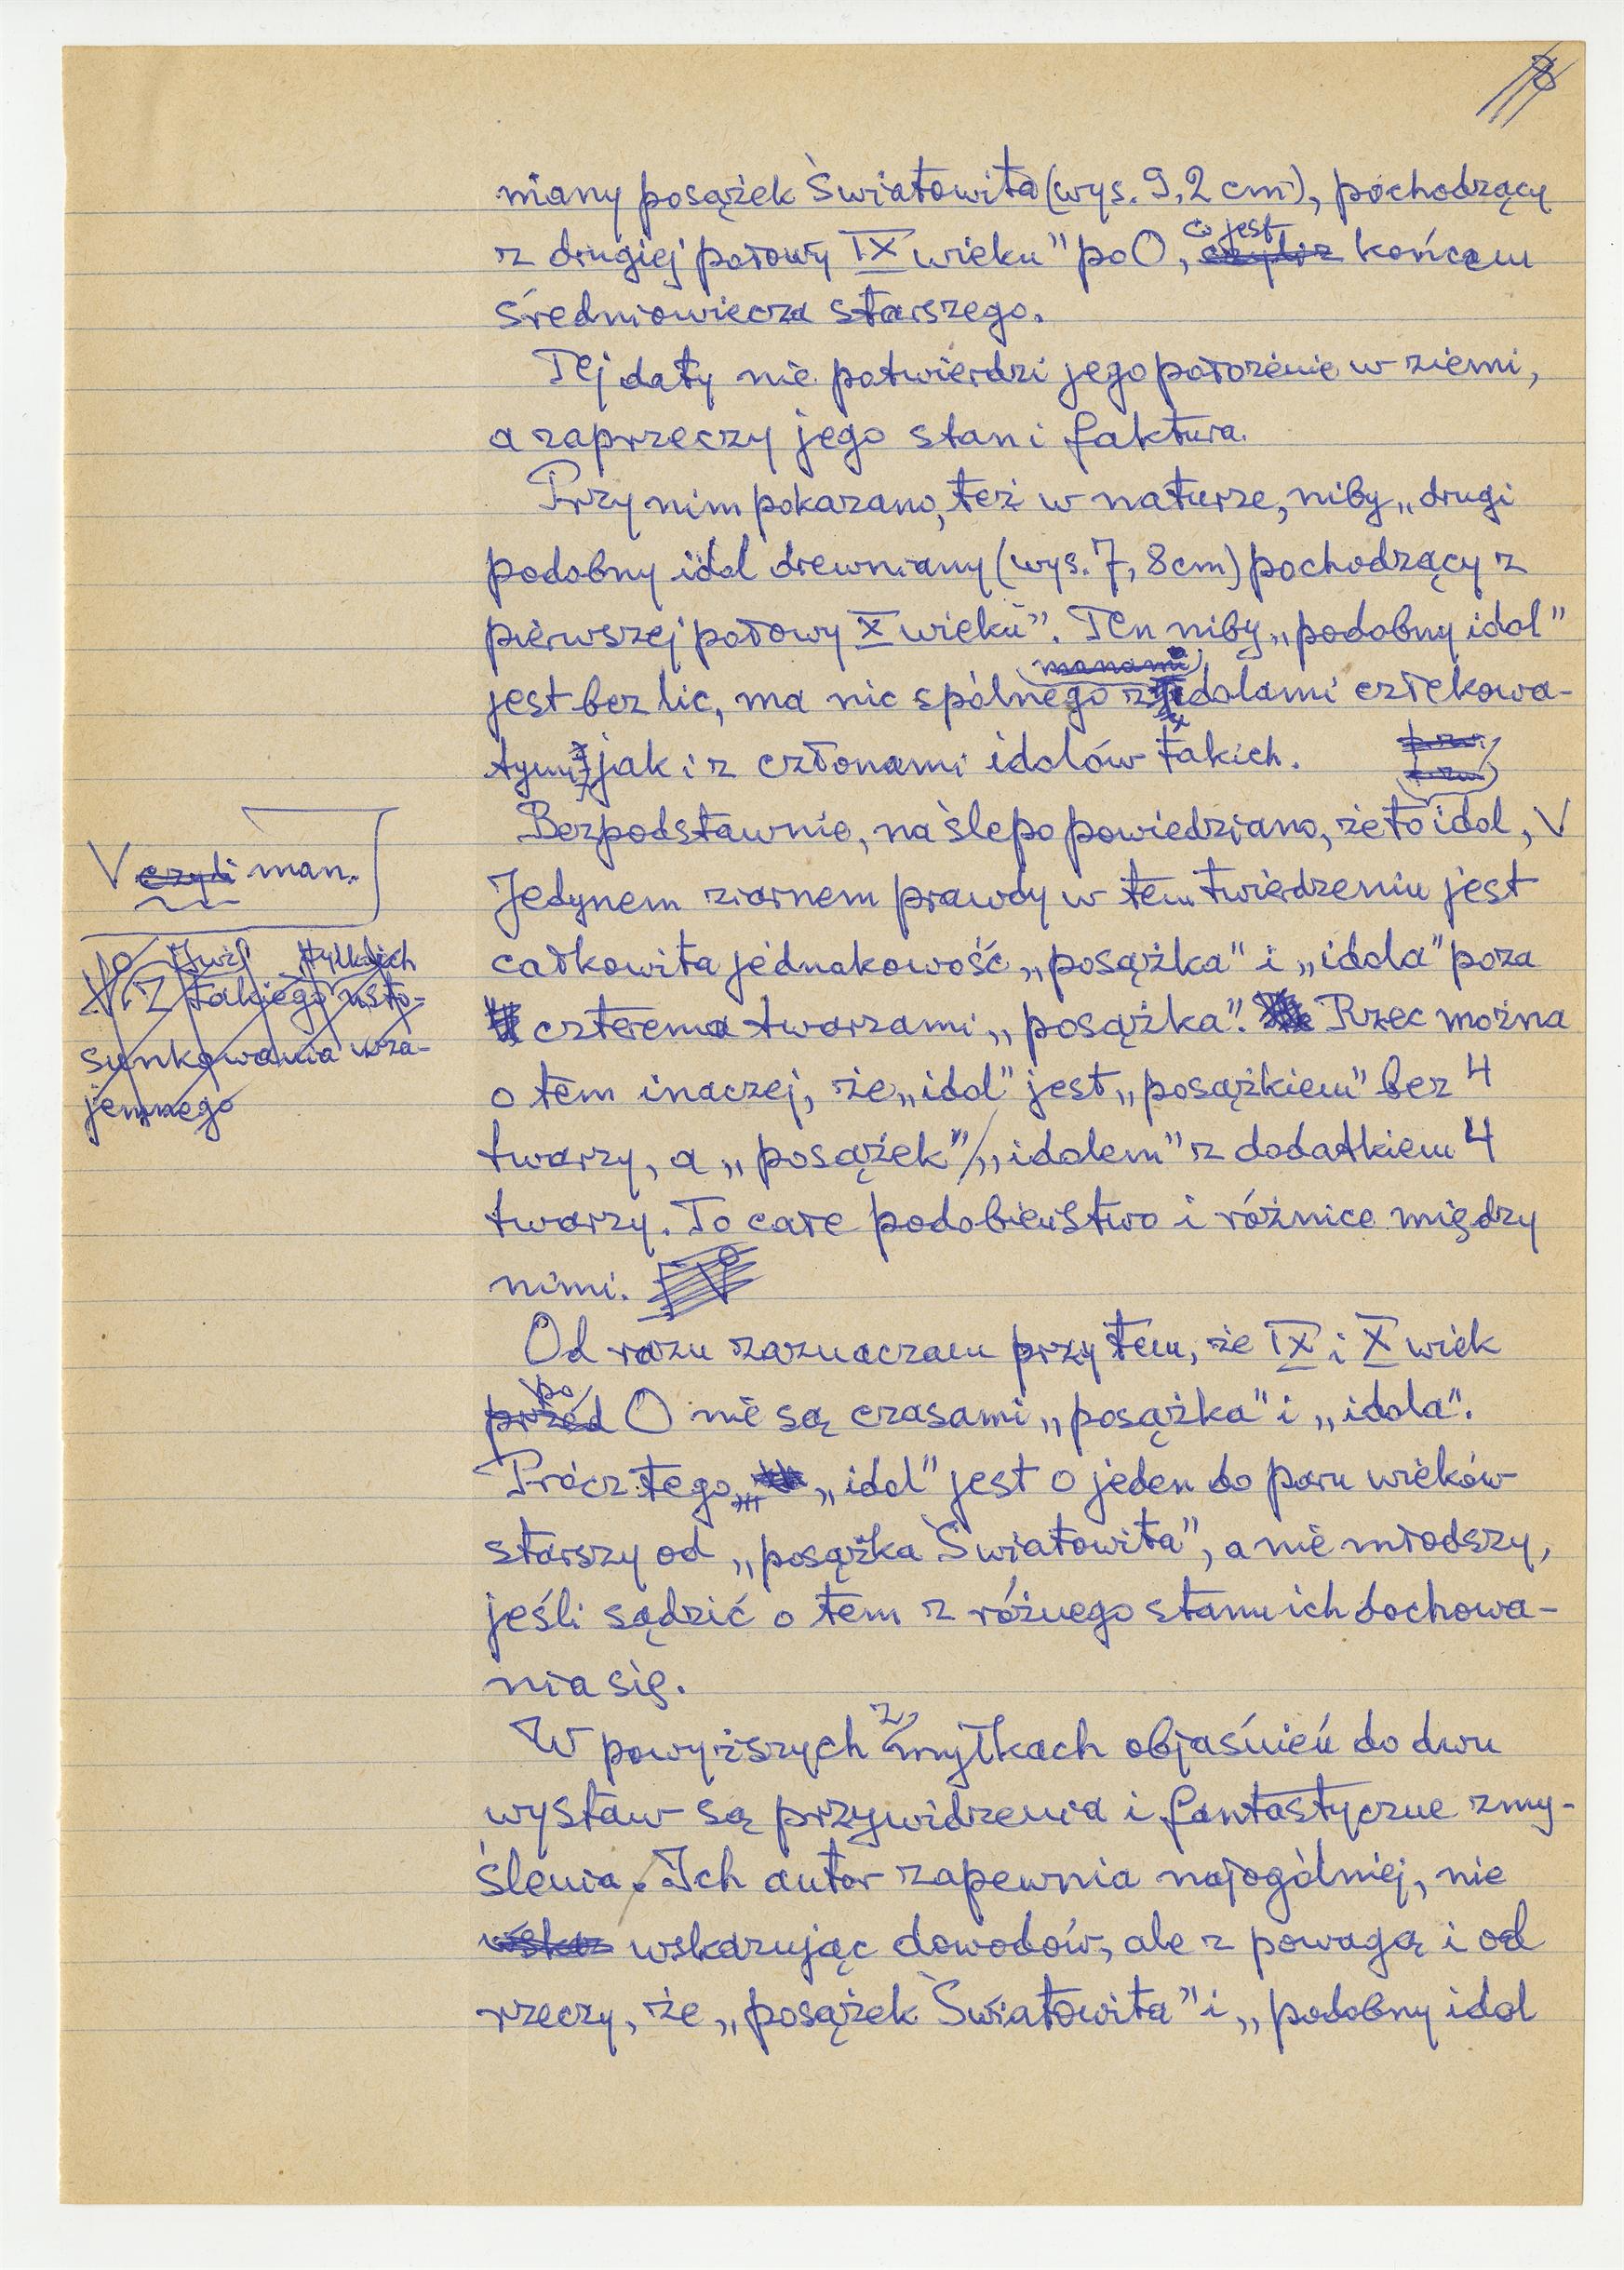 niany posążek Światowita (wys. 9,2 cm), pochodzący
z drugiej połowy IX wieku" po O, co jest końcem
średniowiecza starszego.
Tej daty nie potwierdzi jego położenie w ziemi,
a zaprzeczy jego stan i faktura.
Przy nim pokazano, też w naturze, niby „drugi
podobny idol drewniany (wys. 7,8cm) pochodzący z
pierwszej połowy X wieku". Ten niby „podobny idol"
manami
jest bez lic, ma nic spólnego z idolami człekowa-
tymi jak i z członami idolów takich.
Bezpodstawnie, na ślepo powiedziano, że to idol, V
V czyli man.
Jedynem ziarnem prawdy w tem twierdzeniu jest
całkowita jednakowość „posążka" i „idola" poza
Z takiego usto-
sunkowania wza-
jemnego
czterema twarzami „posążka". Rzec można
o tem inaczej, że „idol" jest „posążkiem" bez 4
twarzy, a „posążek" „idolem" z dodatkiem 4
twarzy. To całe podobieństwo i różnice między
nimi.
Od razu zaznaczam przy tem, że IX i X wiek
po
przed O nie są czasami „posążka" i „idola".
Prócz tego „idol" jest o jeden do paru wieków
starszy od „posążka Światowita", a nie młodszy,
jeśli sądzić o tem z różnego stanu ich dochowa-
nia się.
W powyższych zmyłkach objaśnień do dwu
wystaw są przywidzenia i fantastyczne zmy-
ślenia. Ich autor zapewnia najogólniej, nie
wskaz wskazując dowodów, ale z powagą i od
rzeczy, że „posążek Światowita" i „podobny idol